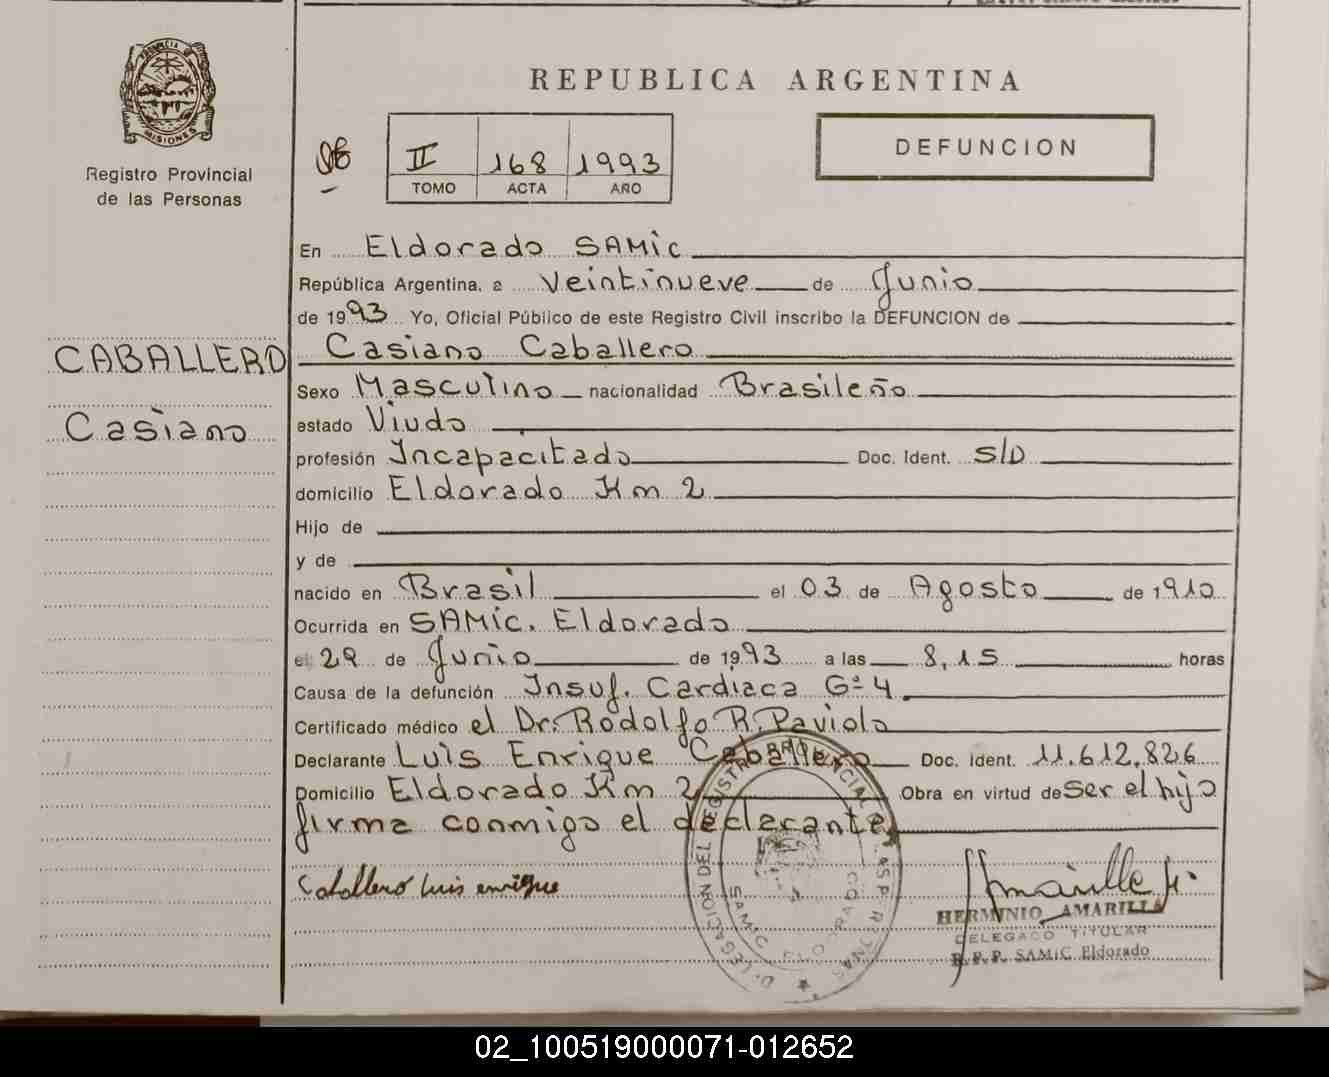 PROVINCIA DE
MISIONES
Registro Provincial
de las Personas
REPUBLICA ARGENTINA
II 168 1993
TOMO ACTA AÑO
DEFUNCION
En Eldorado SAMiC
República Argentina, a Veintinueve de Junio
de 1993 Yo, Oficial Público de este Registro Civil inscribo la DEFUNCION de
CABALLERO
Casiano
Casiano Caballero
Sexo Masculino nacionalidad Brasileño
estado Viudo
profesión Incapacitado Doc. Ident. S/D
domicilio Eldorado Km 2
Hijo de
y de
nacido en Brasil el 03 de Agosto de 1910
Ocurrida en SAMiC. Eldorado
el 29 de Junio de 1993 a las 8,15 horas
Causa de la defunción Insuf. Cardiaca Gº 4.
Certificado médico el Dr. Rodolfo R. Paviolo
Declarante Luis Enrique Caballero Doc. Ident. 11.612.826
Domicilio Eldorado Km 2 Obra en virtud de Ser el hijo
firma conmigo el declarante.
Caballero luis enrique
HERMINIO AMARILLA
DELEGADO TITULAR
R.P.P. SAMiC Eldorado
DELEGACION DEL REGISTRO PROVINCIAL
SAMIC ELDORADO
02_100519000071-012652